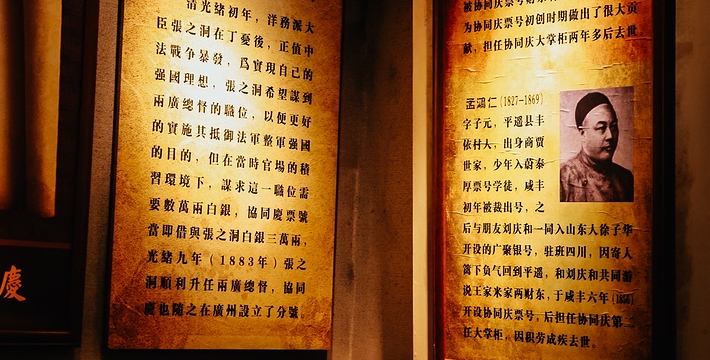 清光緒初年，洋務派大
臣張之洞在丁憂後，正值中
法戰争暴發，爲實現自己的
强國理想，張之洞希望謀到
兩廣總督的職位，以便更好
的實施其抵御法軍整軍强國
的目的，但在當時官場的積
習環境下，謀求這一職位需
要數萬兩白銀，協同慶票號
當即借與張之洞白銀三萬兩，
光緒九年（1883年）張之
洞順利升任兩廣總督，協同
慶也隨之在廣州設立了分號。
慶
被协同庆票号财东
为协同庆票号初创时期做出了很大贡
献，担任协同庆大掌柜两年多后去世
孟鸿仁(1827-1869)
字子元，平遥县丰
依村人，出身商贾
世家，少年入蔚泰
厚票号学徒，咸丰
初年被裁出号，之
后与朋友刘庆和一同入山东人徐子华
开设的广聚银号，驻班四川，因寄人
篱下负气回到平遥，和刘庆和共同游
说王家米家两财东，于咸丰六年(1856)
开设协同庆票号，后担任协同庆第二
任大掌柜，因积劳成疾去世。